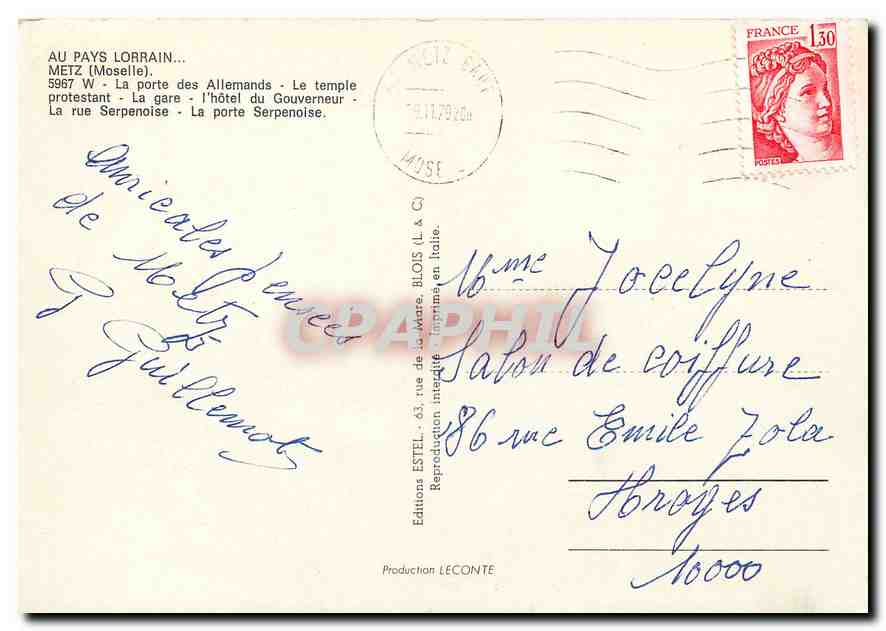 AU PAYS LORRAIN...
METZ (Moselle).
5967 W - La porte des Allemands - Le temple
protestant - La gare - l'hôtel du Gouverneur -
La rue Serpenoise - La porte Serpenoise.
METZ
MOSE
FRANCE 1,30
POSTES
Amicales Pensées
de Metz
G Guillemot
CPAPHIL
Editions ESTEL - 63, rue de la Mare, BLOIS (L. & C)
Reproduction interdite - Imprimé en Italie.
Mme Jocelyne
Salon de coiffure
186 rue Emile Zola
Troyes
10000
Production LECONTE